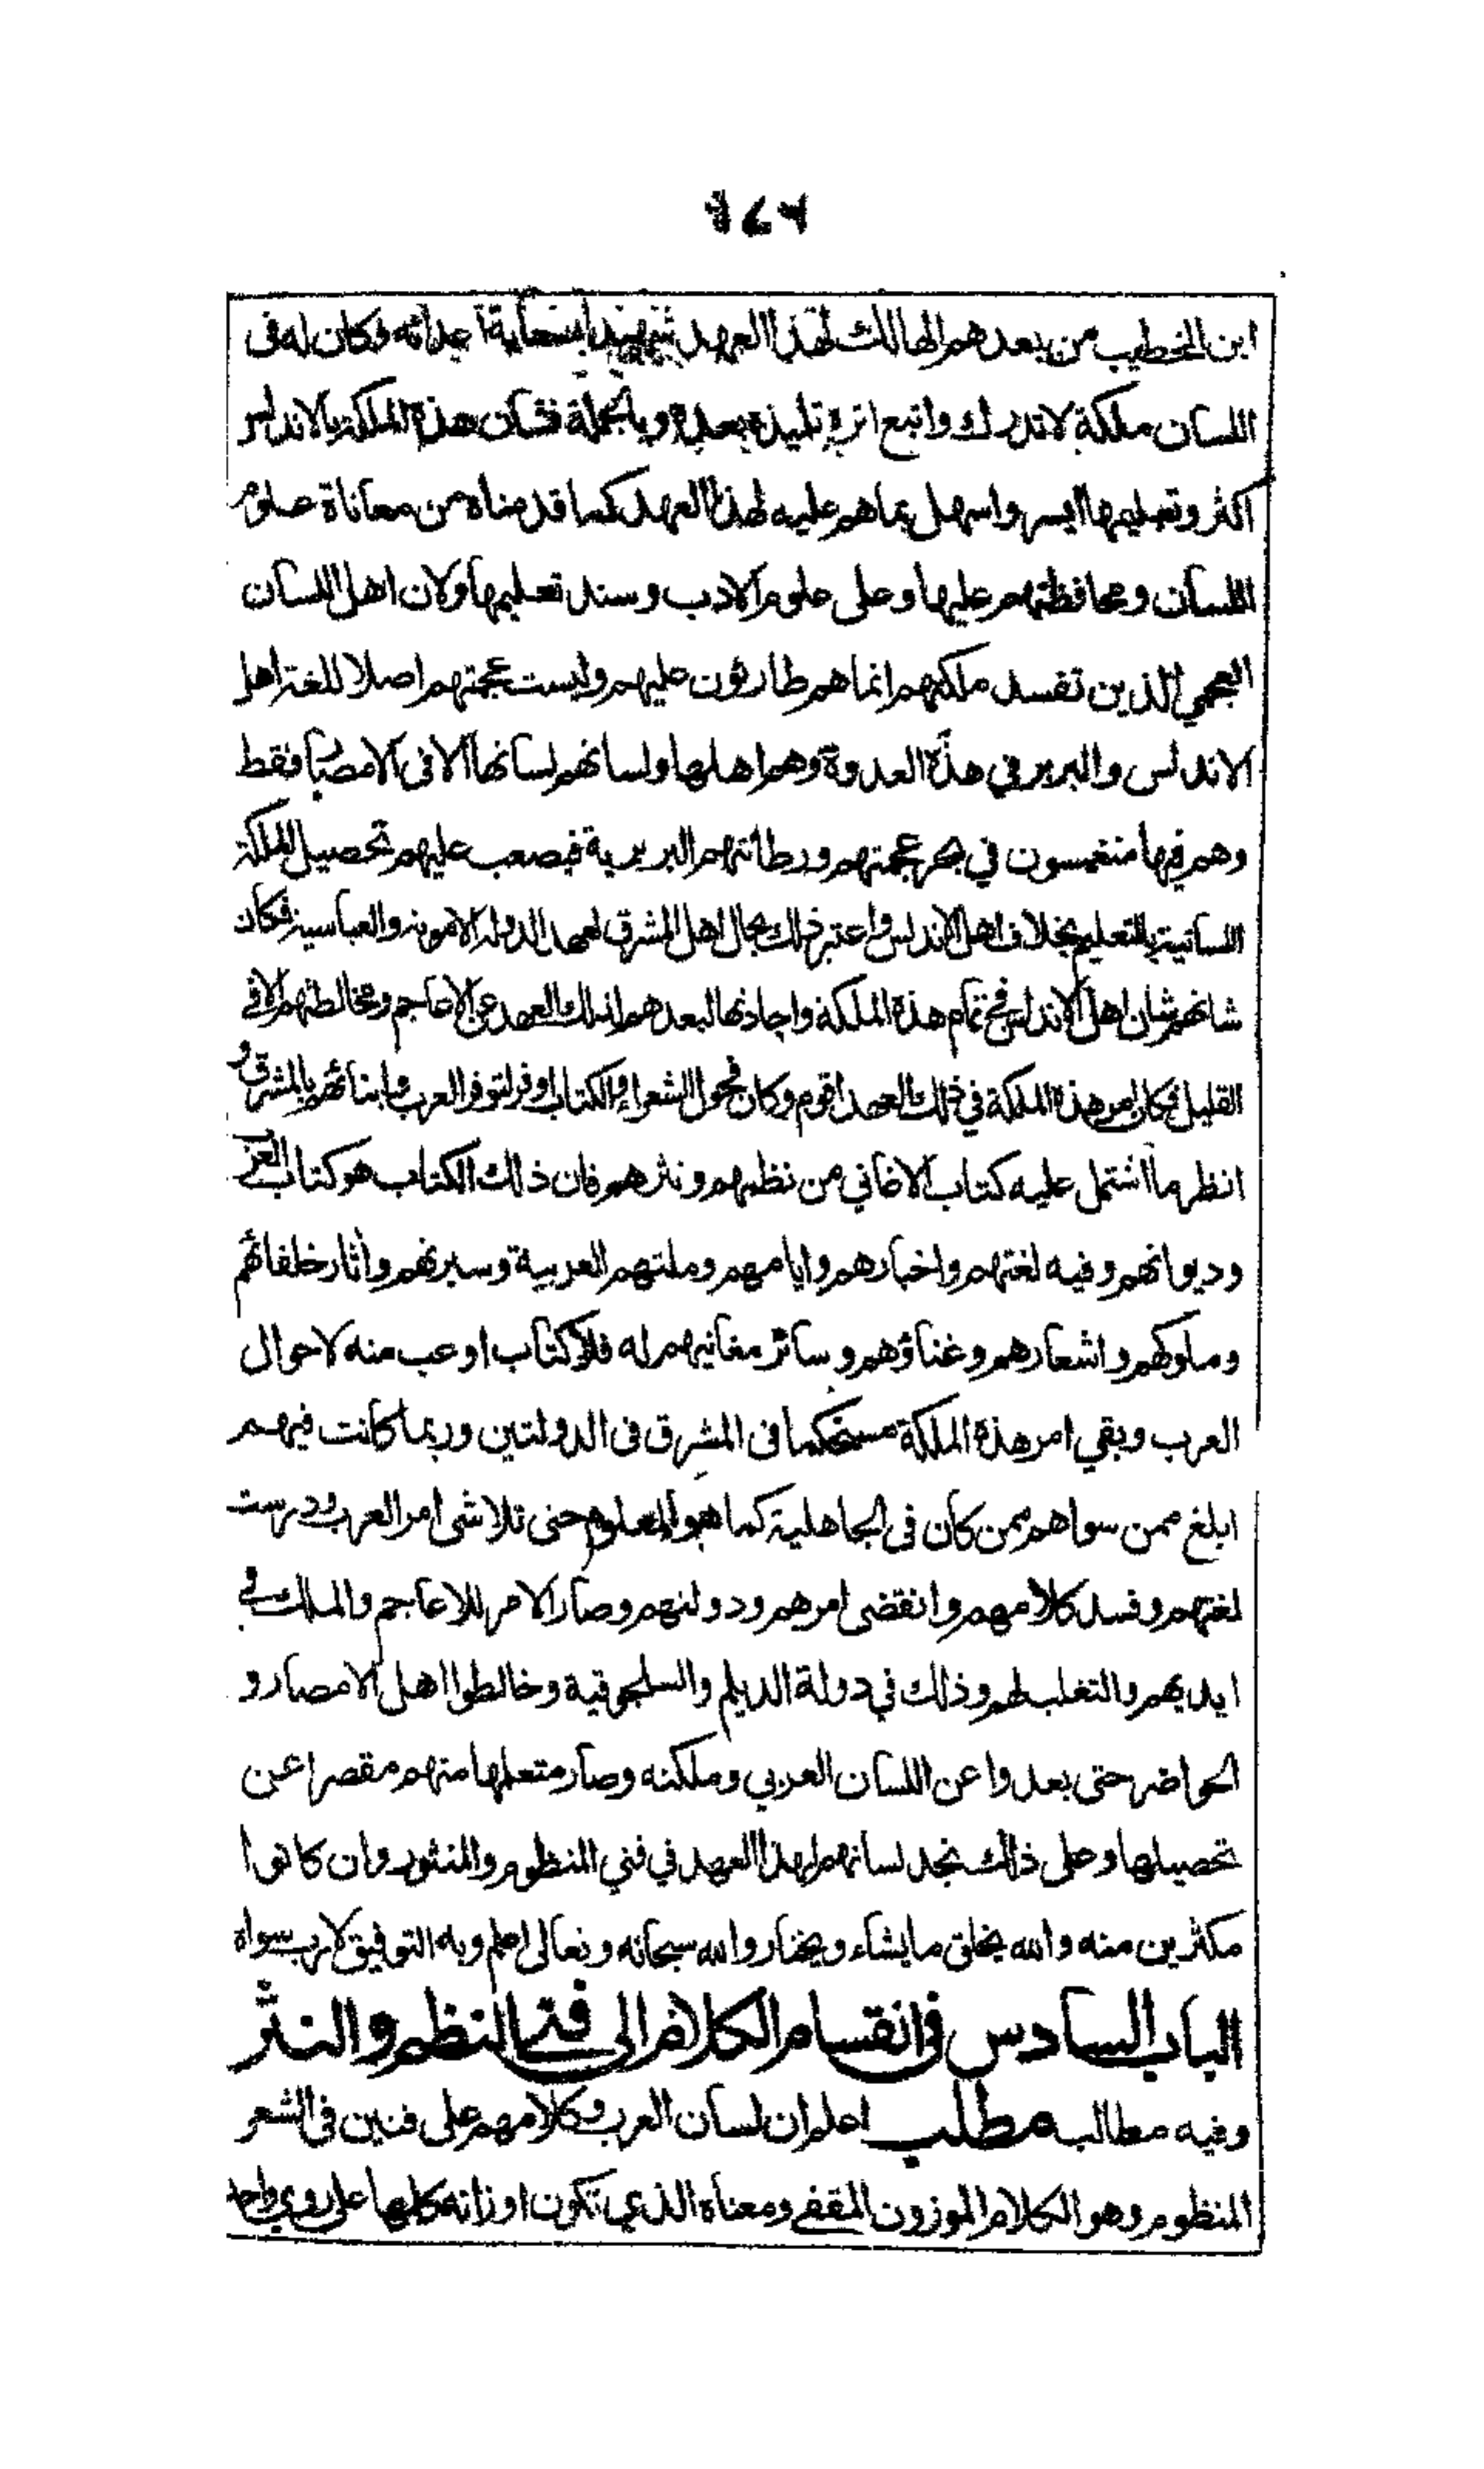 ابن الخطيب من بعدهم الهالك لهذا العهد شهيدا بسعاية اعدائه وكان له فى
اللسان ملكة لاتدرك واتبع اثره تليذه بعده وبالجملة فشان هذه الملكة بالاندلس
اكثر وتعليمها ايسر واسهل بماهم عليه لهذا العهد كما قدمناه من معاناة علوم
اللسان ومحافظتهم عليها وعلى علوم الادب وسند تعليمها ولان اهل اللسان
العجمي الذين تفسد ملكتهم انما هم طارئون عليهم وليست عجمتهم اصلا للغة اهل
الاندلس والبربر في هذه العدوة وهم اهلها ولسانهم لسانها الا فى الامصار فقط
وهم فيها منغمسون في بحر عجمتهم ورطانتهم البربرية فيصعب عليهم تحصيل الملكة
اللسانية بالتعليم بخلاف اهل الاندلس واعتبر ذلك بحال اهل المشرق لعهد الدولة الاموية والعباسية فكان
شانهم شان اهل الاندلس فى تمام هذه الملكة واجادتها لبعدهم لذلك العهد عن الاعاجم ومخالطتهم الا في
القليل فكان امر هذه الملكة في ذلك العهد اقوم وكان فحول الشعراء والكتاب اوفر لتوفر العرب وابنائهم بالمشرق و
انظر ما اشتمل عليه كتاب الاغاني من نظمهم ونثرهم فان ذلك الكتاب هو كتاب العرب
وديوانهم وفيه لغتهم واخبارهم وايامهم وملتهم العربية وسيرتهم واثار خلفائهم
وملوكهم واشعارهم وغناؤهم وسائر مغانيهم له فلا كتاب اوعب منه لاحوال
العرب وبقي امر هذه الملكة مستحكما فى المشرق فى الدولتين وربما كانت فيهم
ابلغ ممن سواهم ممن كان فى الجاهلية كما هو المعلوم حتى تلاشى امر العرب ودرست
لغتهم وفسد كلامهم وانقضى امرهم ودولتهم وصار الامر للاعاجم والملك في
ايديهم والتغلب لهم وذلك في دولة الديلم والسلجوقية وخالطوا اهل الامصار و
الحواضر حتى بعدوا عن اللسان العربي وملكته وصار متعلمها منهم مقصرا عن
تحصيلها وعلى ذلك نجد لسانهم لهذا العهد في فني المنظوم والمنثور وان كانوا
مكثرين منه والله يخلق ما يشاء ويختار والله سبحانه وتعالى اعلم وبه التوفيق لا رب سواه
الباب السادس فى انقسام الكلام الى فنى النظم والنثر
وفيه مطالب مطلب اعلم ان لسان العرب وكلامهم على فنين فى الشعر
المنظوم وهو الكلام الموزون المقفى ومعناه الذي تكون اوزانه كلها على روي واحد